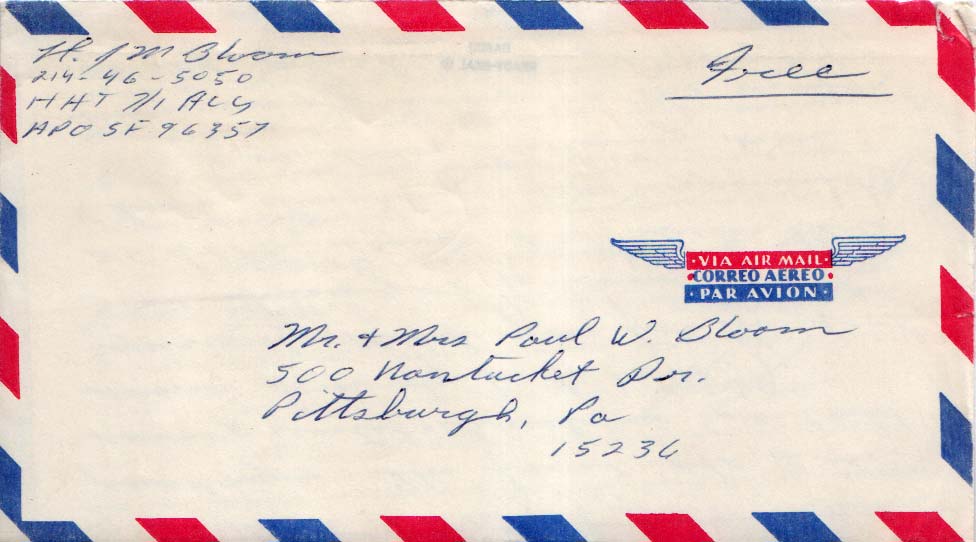 H. J M Bloom
214-46-5050
HHT 7/1 ACS
APO SF 96357
Free
· VIA AIR MAIL ·
· CORREO AEREO ·
· PAR AVION ·
Mr. + Mrs Paul W. Bloom
500 Nantucket Dr.
Pittsburgh, Pa
15236